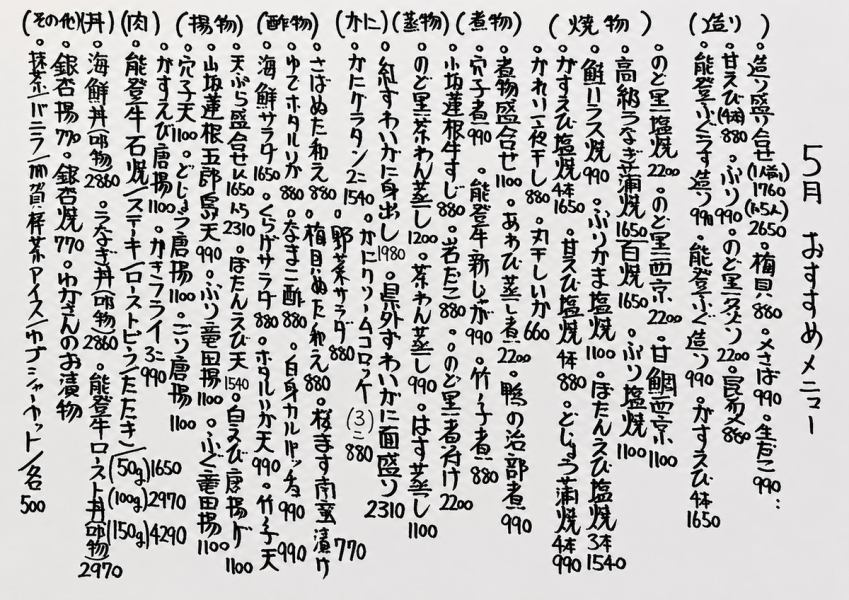 5月 おすすめメニュー
(造り)
・造り盛り合せ(1人前)1760 (2〜3人)2650 ・梅貝880 ・〆さば990 ・生だこ990
・甘えび(4本)880 ・ぶり990 ・のど黒炙り2200 ・昆布〆880
・能登ふぐうす造り990 ・能登ふぐ造り990 ・がすえび4本1650
(焼物)
・のど黒塩焼2200 ・のど黒西京2200 ・甘鯛西京1100
・高級うなぎ蒲焼1650/白焼1650 ・ぶり塩焼1100
・鮭ハラス焼990 ・ぶりかま塩焼1100 ・ぼたんえび塩焼3本1540
・がすえび塩焼4本1650 ・甘えび塩焼4本880 ・どじょう蒲焼4本990
・かれい一夜干し880 ・丸干しいか660
(煮物)
・煮物盛合せ1100 ・あわび蒸し煮2200 ・鴨の治部煮990
・穴子煮990 ・能登牛新じゃが990 ・竹の子煮880
・小坂蓮根牛すじ880 ・岩だこ880 ・のど黒煮付け2200
(蒸物)
・のど黒茶わん蒸し1200 ・茶わん蒸し990 ・はす蒸し1100
(かに)
・紅ずわいかに身出し1980 ・県外ずわいかに面盛り2310
・かにグラタン2コ1540 ・かにクリームコロッケ(3)コ880
(酢物)
・野菜サラダ880
・さばぬた和え880 ・梅貝ぬた和え880 ・桜ます南蛮漬け770
・ゆでホタルイカ880 ・なまこ酢880 ・白身カルパッチョ990
・海鮮サラダ1650 ・くらげサラダ880 ・ホタルイカ天990 ・竹の子天990
(揚物)
・天ぷら盛合せ1650 2310 ・ぼたんえび天1540 ・白えび唐揚げ1100
・小坂蓮根五郎島天990 ・ぶり竜田揚1100 ・ふぐ竜田揚1100
・穴子天1100 ・どじょう唐揚1100 ・ごり唐揚1100
・がすえび唐揚1100 ・かきフライ3コ990
(肉)
・能登牛石焼/ステーキ/ローストビーフ/たたき/(50g)1650 (100g)2970 (150g)4290
(丼)
・海鮮丼(吸物)2860 ・うなぎ丼(吸物)2860 ・能登牛ロースト丼(吸物)2970
(その他)
・銀杏揚770 ・銀杏焼770 ・わかさんのお漬物
・抹茶/バニラ/加賀棒茶アイス/ゆずシャーベット/各500